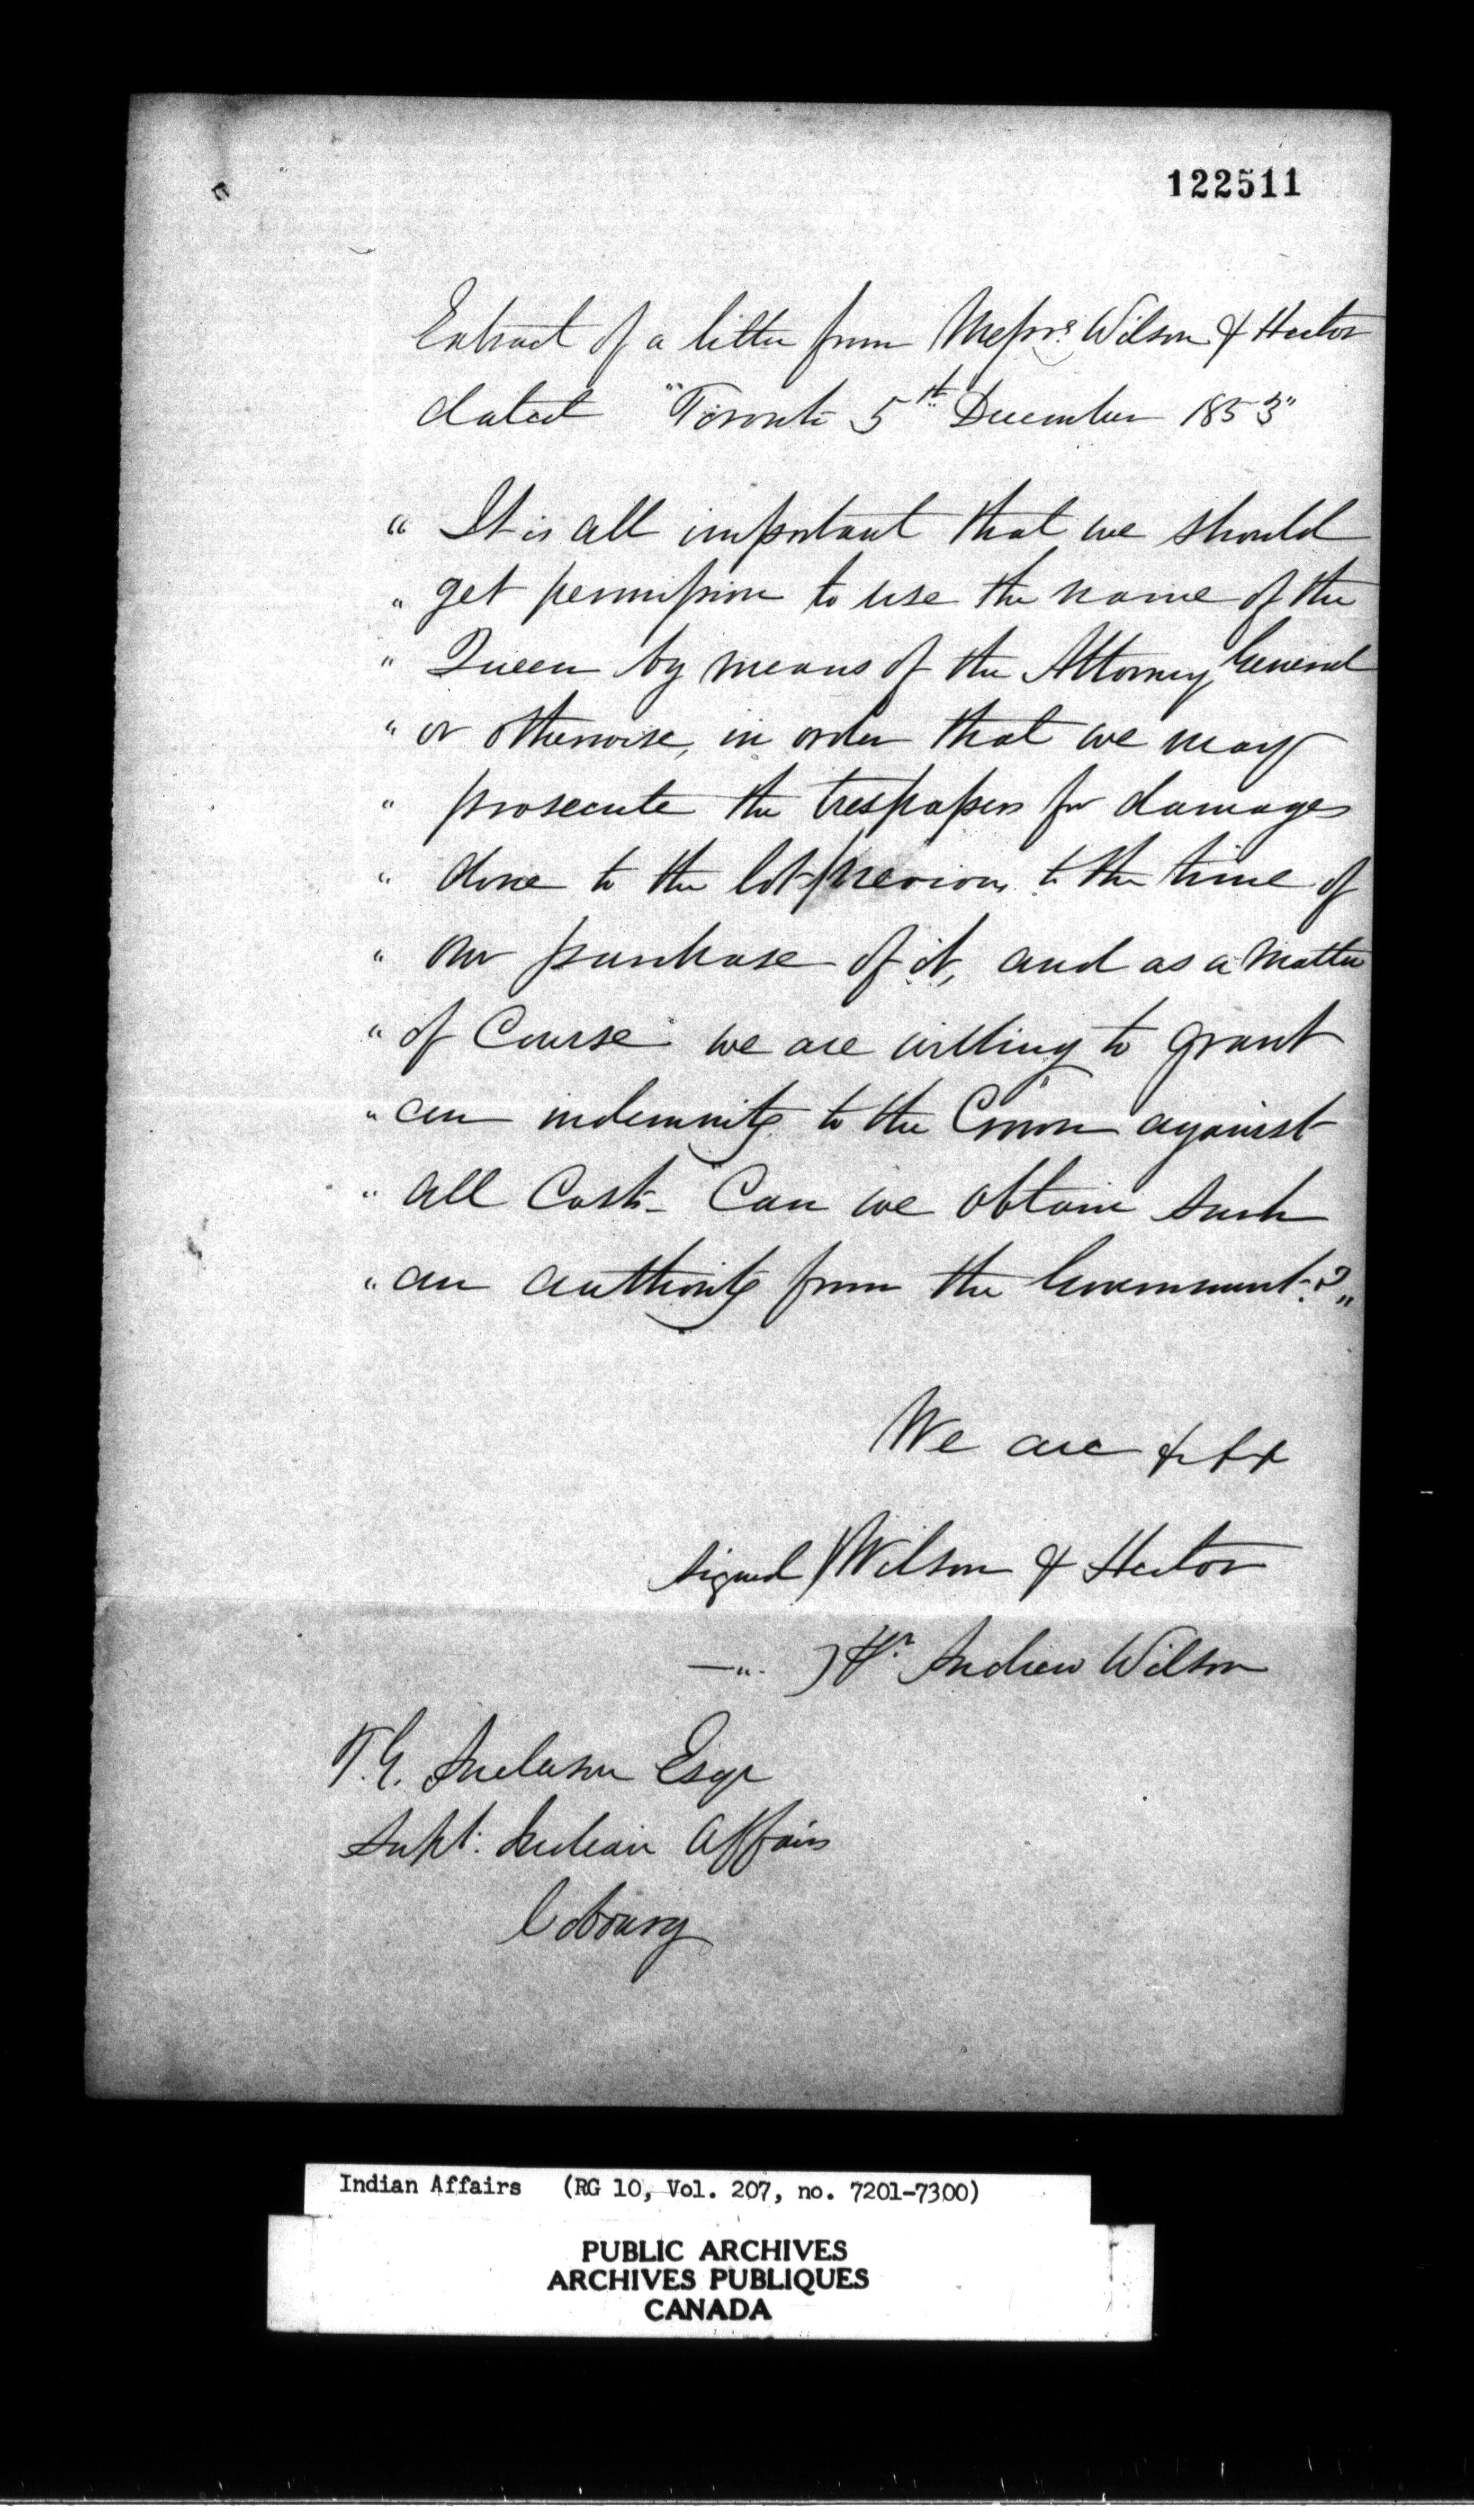 122511
Extract of a letter from Messrs. Wilson & Hector
dated "Toronto 5th December 1853"
" It is all important that we should
" get permission to use the name of the
" Queen by means of the Attorney General
" or otherwise, in order that we may
" prosecute the trespassers for damages
" done to the lot previous to the time of
" our purchase of it, and as a matter
" of Course we are willing to grant
" an indemnity to the Crown against
" all Costs- Can we obtain such
" an authority from the Government?"
We are &c
signed) Wilson & Hector
—"— ) Andrew Wilson
T.G. Anderson Esqr
Supt. Indian Affairs
Cobourg
Indian Affairs (RG 10, Vol. 207, no. 7201-7300)
PUBLIC ARCHIVES
ARCHIVES PUBLIQUES
CANADA